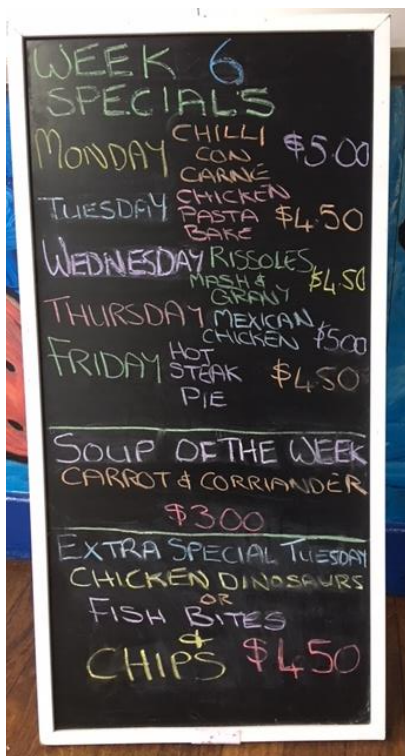 WEEK 6
SPECIAL'S
MONDAY CHILLI CON CARNE $5.00
TUESDAY CHICKEN PASTA BAKE $4.50
WEDNESDAY RISSOLES MASH & GRAVY $4.50
THURSDAY MEXICAN CHICKEN $500
FRIDAY HOT STEAK PIE $4.50
SOUP OF THE WEEK
CARROT & CORRIANDER
$300
EXTRA SPECIAL TUESDAY
CHICKEN DINOSAURS
OR
FISH BITES
&
CHIPS $4.50